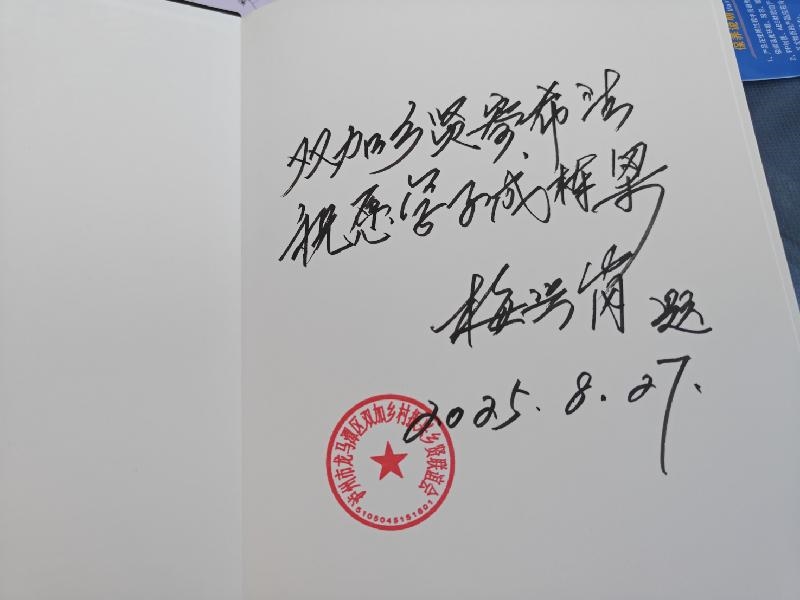 双加乡贤寄希法
祝愿学子成栋梁
梅 题
2025.8.27.
泸州市龙马潭区双加乡村振兴乡贤联谊会
5105045151601
保养说明